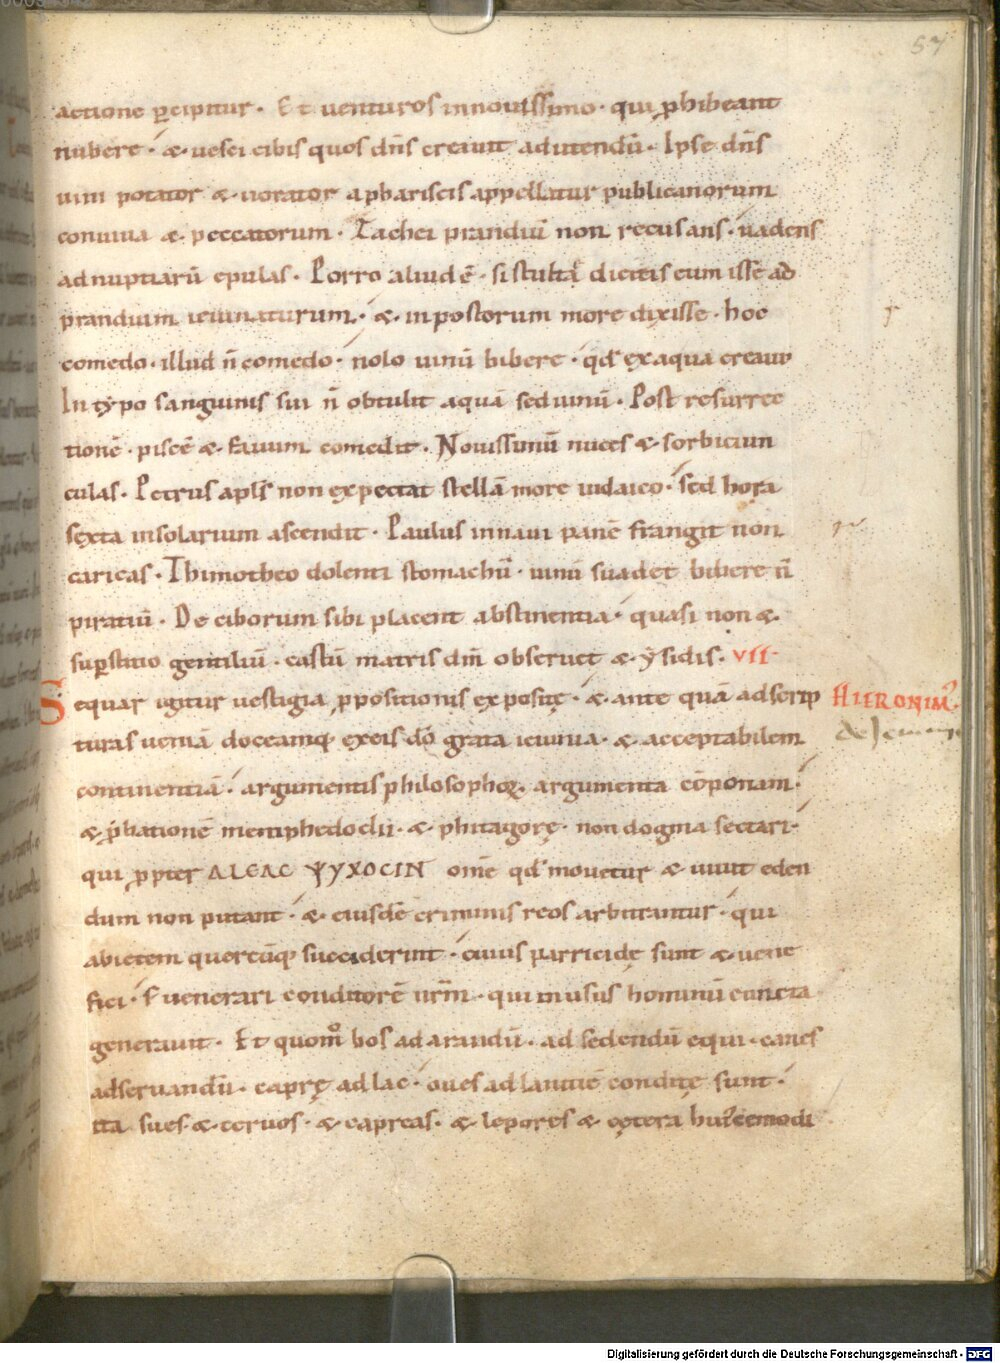 57
actione ꝑcipitur · Et uenturos innouissimo · qui ꝓhibeant
nubere · & uesci cibis quos dñs creauit adutendū · Ipse dñs
uini potator & uorator aphariseis appellatur publicanorum
conuiua & peccatorum · Zachei prandiū non recusans · uadens
adnuptiarū epulas · Porro aliud ē · sistulta dicitis eum isse ad
prandium ieiunaturum · & inpostorum more dixisse · hoc
comedo · illud n̄ comedo · nolo uinū bibere · qd̄ exaqua creaui
In typo sanguinis sui n̄ obtulit aquā sed uinū · Post resurrec
tionē · piscē & fauum comedit · Nouissimū nuces & sorbiciun
culas · Petrus apl̄s non expectat stellā more iudaico · sed hora
sexta insolarium ascendit · Paulus innaui panē frangit non
caricas · Thimotheo dolenti stomachū · uinū suadet bibere n̄
piratiū · De ciborum sibi placent abstinentia · quasi non &
suꝑstitio gentiliū · castū matris dm̄ obseruet & ysidis · VII·
Sequar igitur uestigia ꝓpositionis expositę · & ante quā adscrip
HIERONIM᾽·
turas ueniā doceamq; exeis dō grata ieiunia · & acceptabilem
de Ieiunio
continentiā · argumentis philosophoꝝ · argumenta cōponam ·
& ꝓbationē memphedoclii · & phitagorę · non dogma sectari ·
qui ꝓpter ΔLEΛC ΨYXOCIN om̄e qd̄ mouetur & uiuit eden
dum non putant · & eiusdē criminis reos arbitrantur · qui
abietem quercūq; succiderint · cuius parricidę sunt & uene
fici · Euenerari conditorē nr̄m · qui inusus hominū cuncta
generauit · Et quom̊ bos ad arandū · ad sedendū equi · canes
adseruandū · caprę ad lac · oues ad lanitiē conditę sunt ·
ita sues & ceruos · & capreas · & lepores & cętera huiꝰcemodi
Digitalisierung gefördert durch die Deutsche Forschungsgemeinschaft - DFG